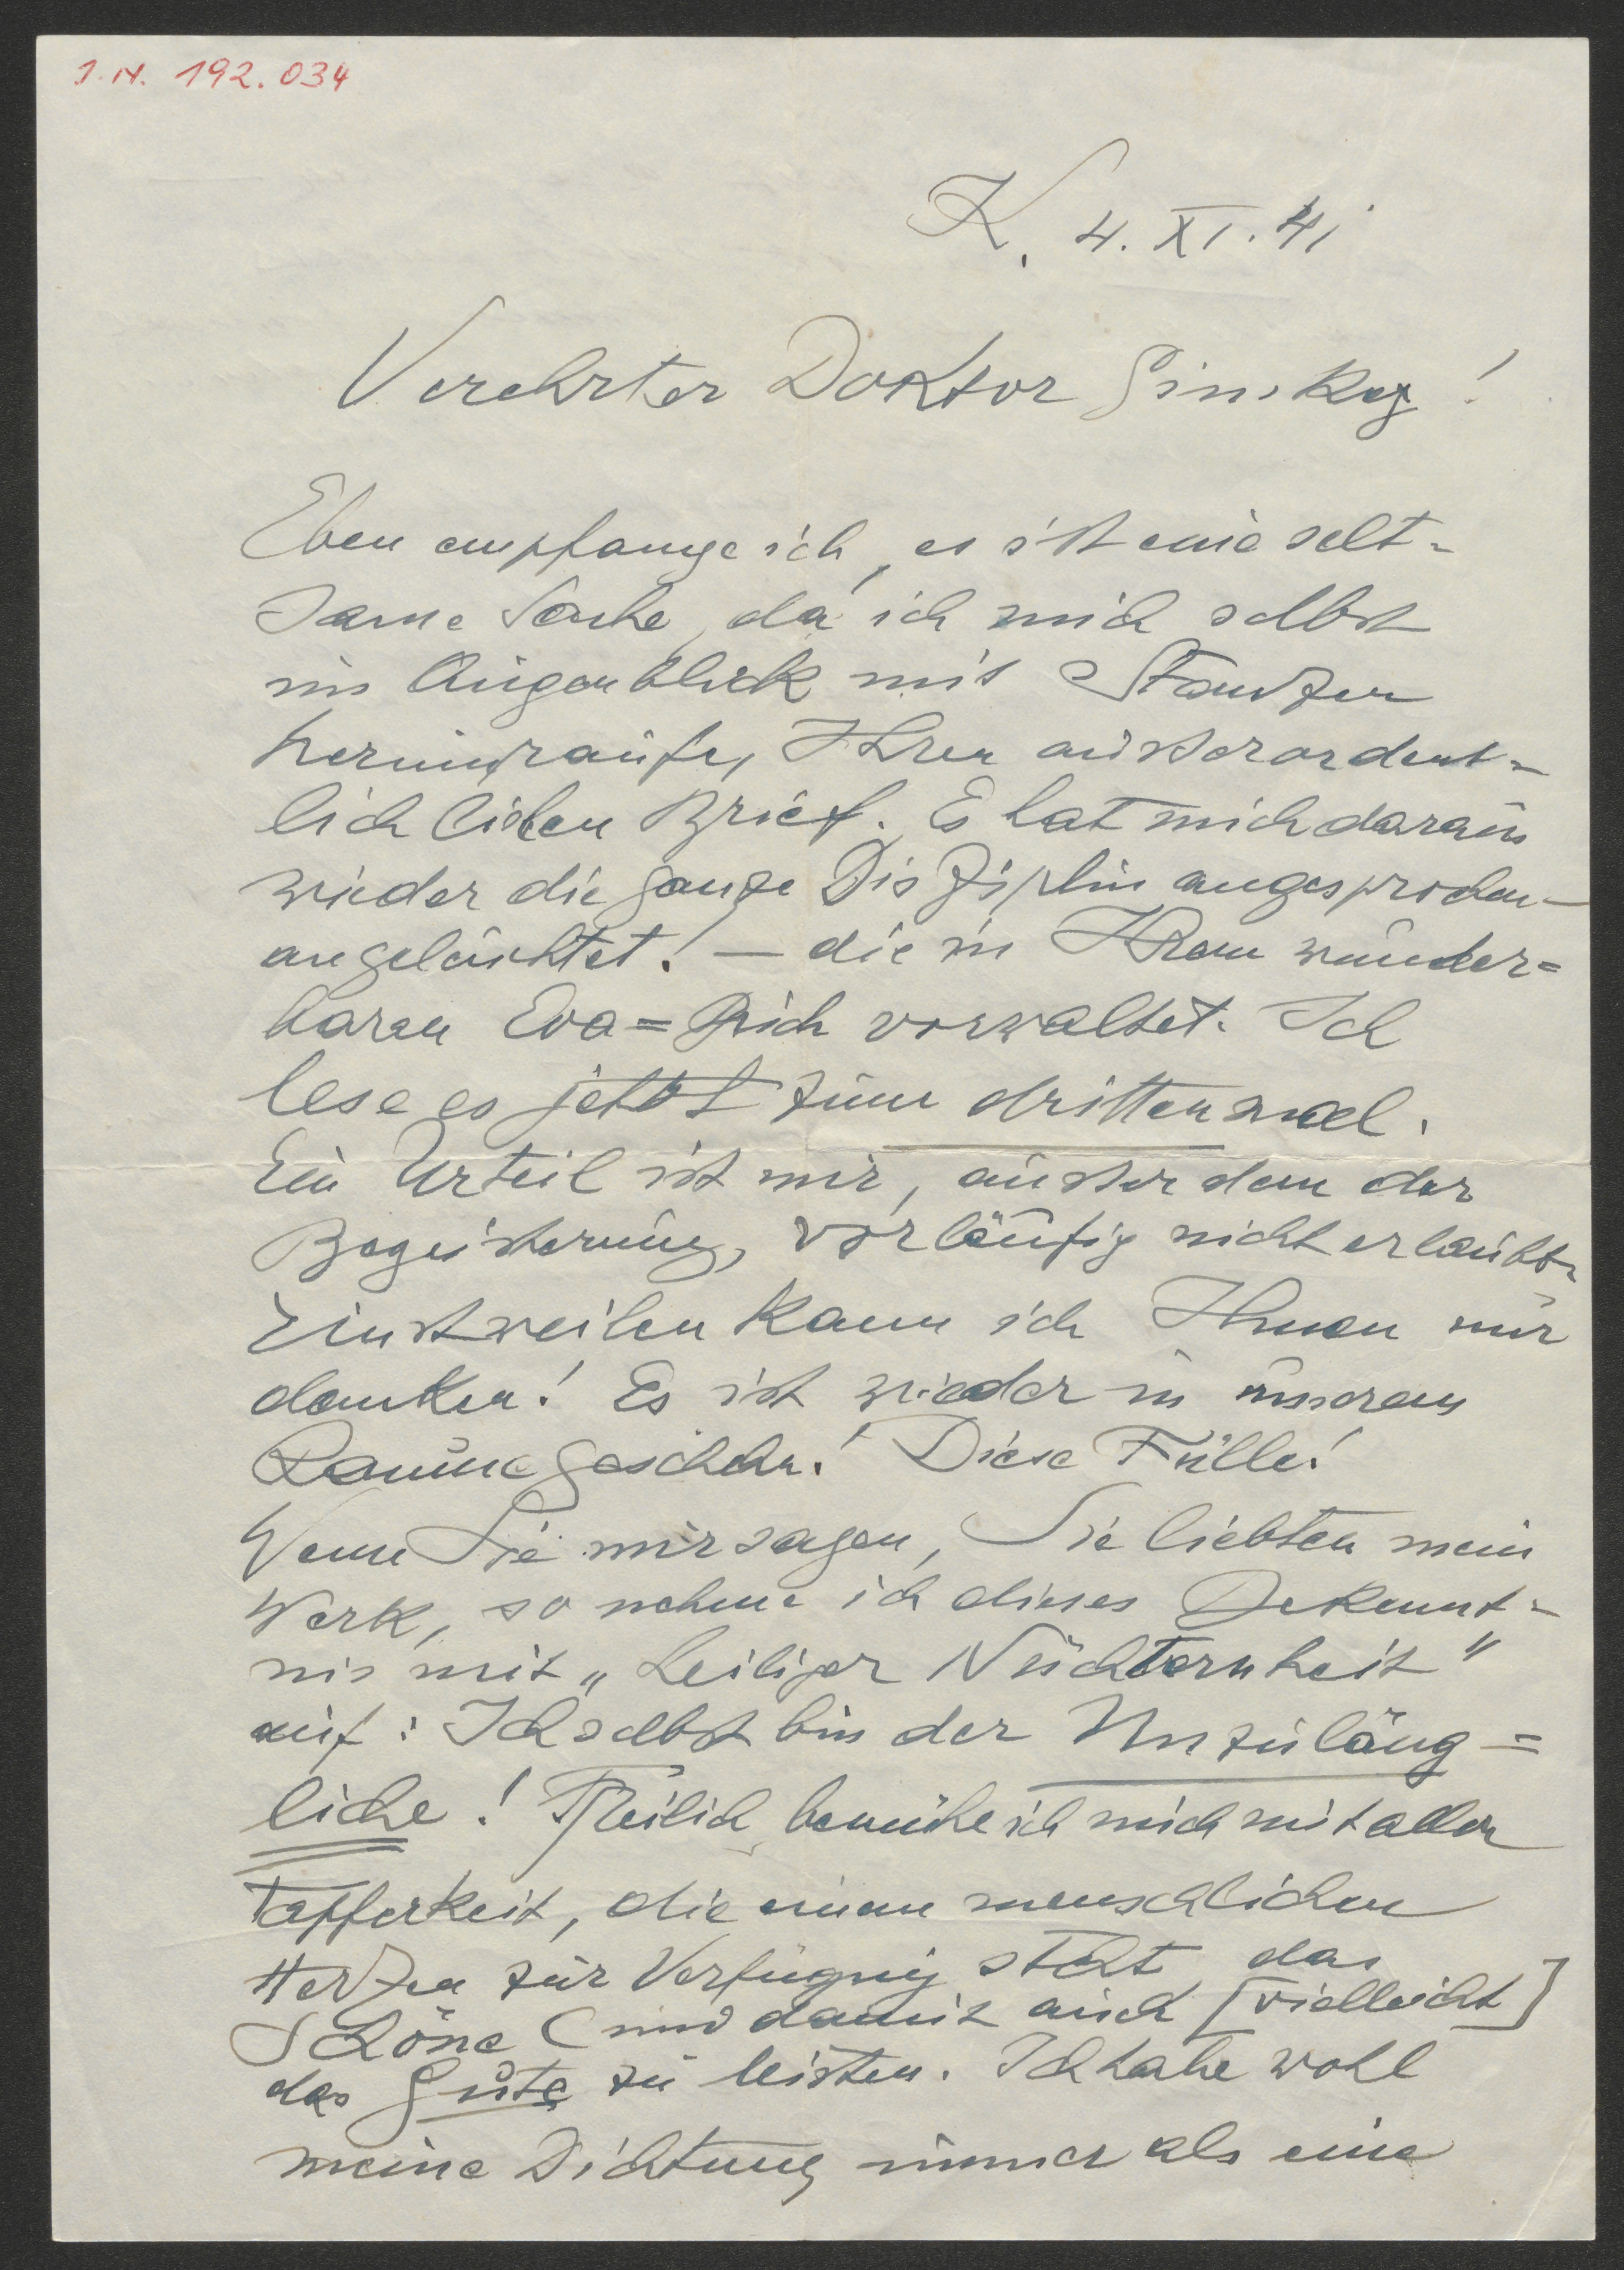 I.N. 192.034
K. 4. XI. 41
Verehrter Doktor Ginzkey!
Eben empfange ich, es ist eine selt-
same Sache, da ich mich selbst
im Augenblick mit Stanzen
herumraufe, Ihren ausserordent-
lich lieben Brief. Es hat mich daraus
wieder die ganze Disziplin angesprochen –
angeleuchtet! – die in Ihrem wunder=
baren Eva=Buch vorwaltet. Ich
lese es jetzt zum drittenmal.
Ein Urteil ist mir, ausser dem der
Begeisterung, vorläufig nicht erlaubt.
Einstweilen kann ich Ihnen nur
danken! Es ist wieder in unserem
Raume geschehn! Diese Fülle!
Wenn Sie mir sagen, Sie liebten mein
Werk, so nehme ich dieses Bekennt-
nis mit „heiliger Nüchternheit"
auf: Ich selbst bin der Unzuläng=
liche! Freilich bemühe ich mich mit aller
Tapferkeit, die einem menschlichen
Herzen zur Verfügung steht das
Schöne (und damit auch [vielleicht]
das Gute zu leisten. Ich habe wohl
meine Dichtung immer als eine